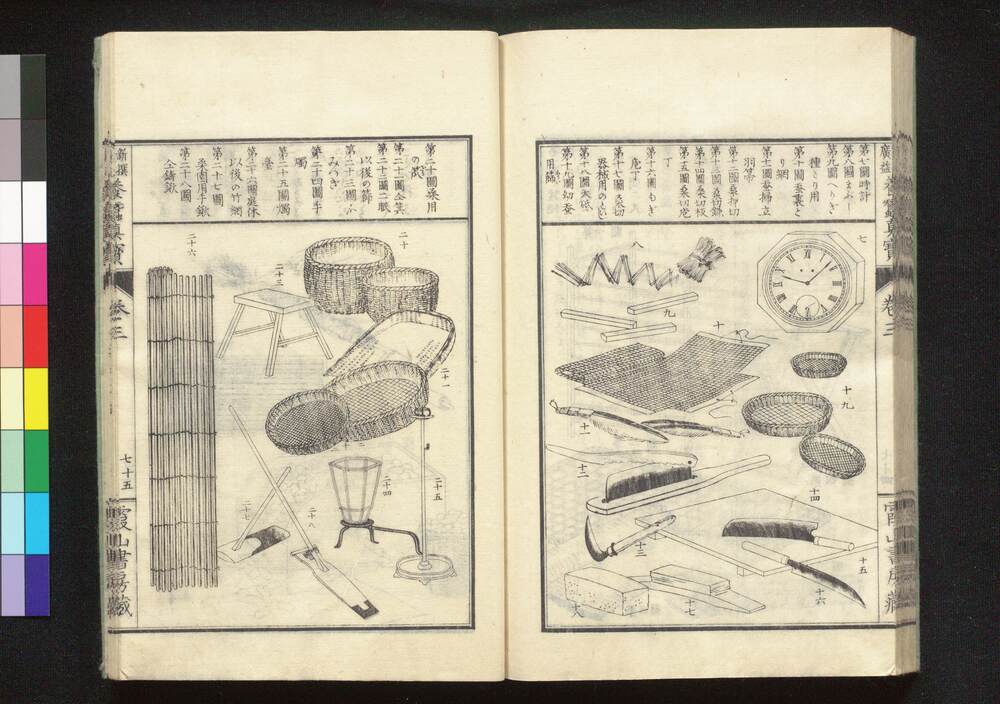 第七圖時計
第八圖まぶし
第九圖へりぎ
種とり用
第十圖蚕裏と
り網
第十一圖蚕掃立
羽箒
第十二圖桑押切
第十三圖桑切鎌
第十四圖桑切板
第十五圖桑切庖
丁
第十六圖もぎ
庖丁
第十七圖桑切
器械用のといし
第十八圖大砥
第十九圖幼蚕
用篩
七
八
九
十
十九
十一
十二
十四
十三
十五
十六
十七
十八
卷三
第二十圖桑用
の籠
第二十一圖仝箕
第二十二圖二眠
以後の篩
第二十三圖ふ
みつぎ
第二十四圖手
燭
第二十五圖燭
臺
第二十六圖庭休
以後の竹網
第二十七圖
桑肉用手鍬
第二十八圖
仝鋳鍬
二十
二十三
二十六
二十一
二十四
二十五
二十七
二十八
卷三
七十五
霞山書房藏